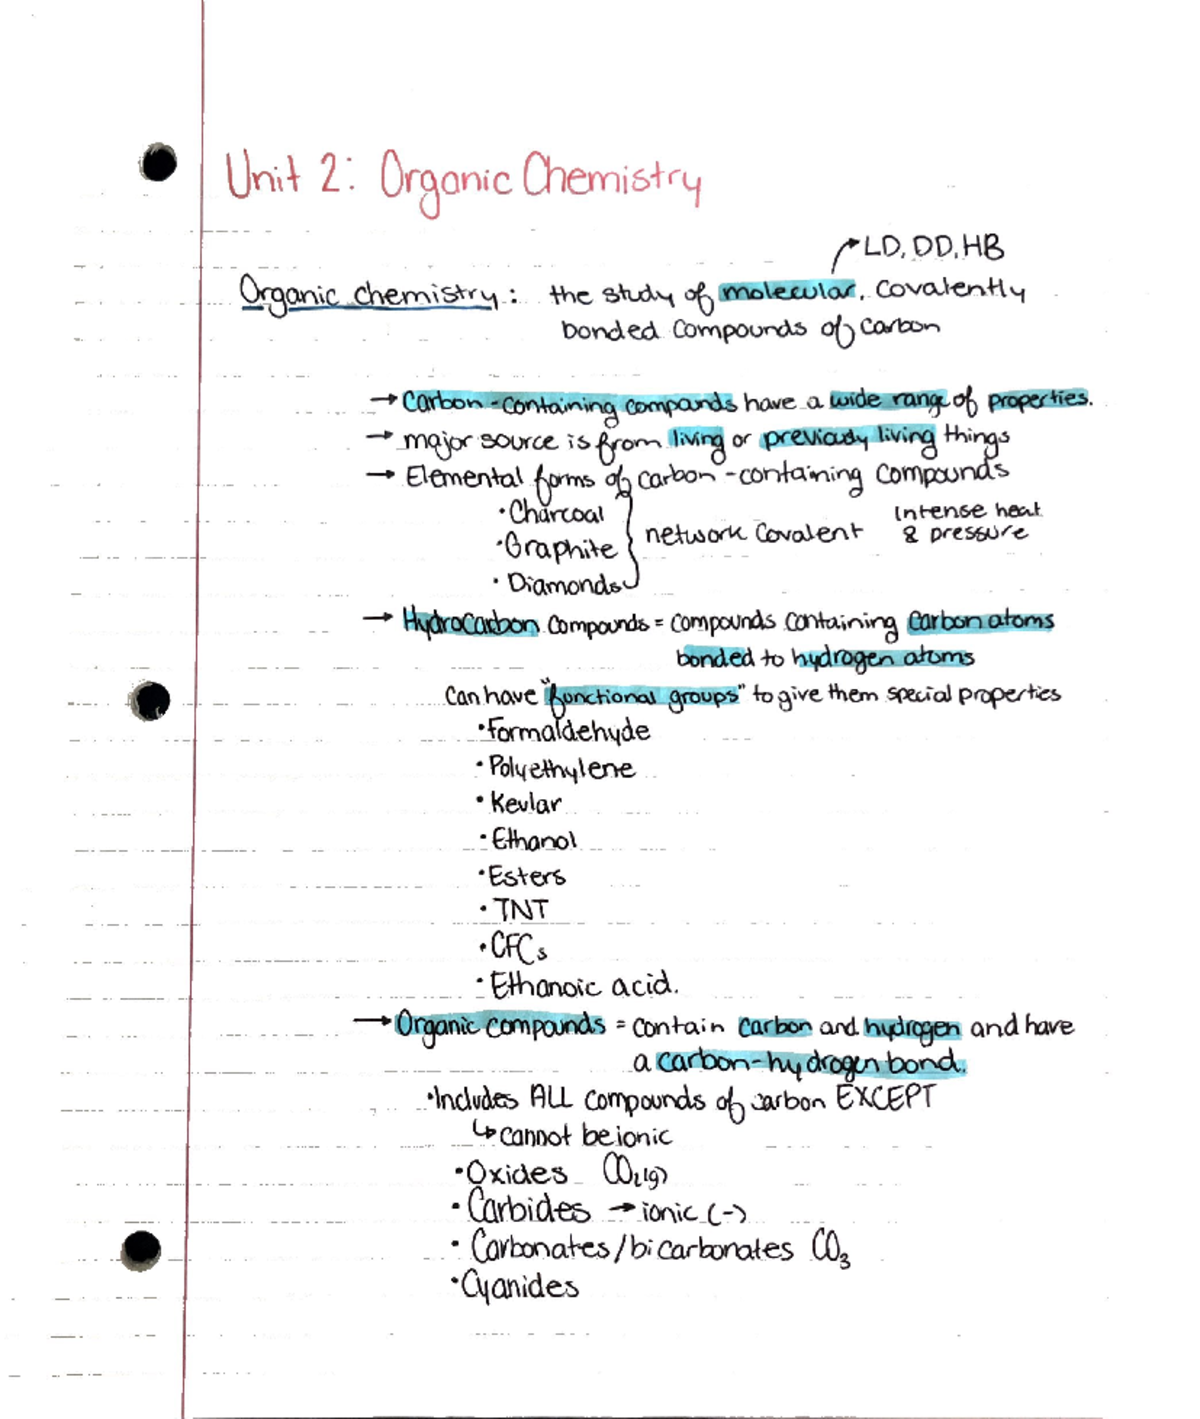 Unit 2: Organic Chemistry
LD, DD, HB
Organic chemistry: the study of molecular, covalently
bonded compounds of carbon
→ Carbon-containing compounds have a wide range of properties.
→ major source is from living or previously living things
→ Elemental forms of carbon-containing compounds
• Charcoal
• Graphite
• Diamonds
network covalent
intense heat
& pressure
→ Hydrocarbon compounds = compounds containing carbon atoms
bonded to hydrogen atoms
Can have "functional groups" to give them special properties
• Formaldehyde
• Polyethylene
• Kevlar
• Ethanol
• Esters
• TNT
• CFCs
• Ethanoic acid.
→ Organic compounds = contain carbon and hydrogen and have
a carbon-hydrogen bond.
• Includes ALL compounds of carbon EXCEPT
↳ cannot be ionic
• Oxides CO₂(g)
• Carbides → ionic (-)
• Carbonates/bicarbonates CO₃
• Cyanides